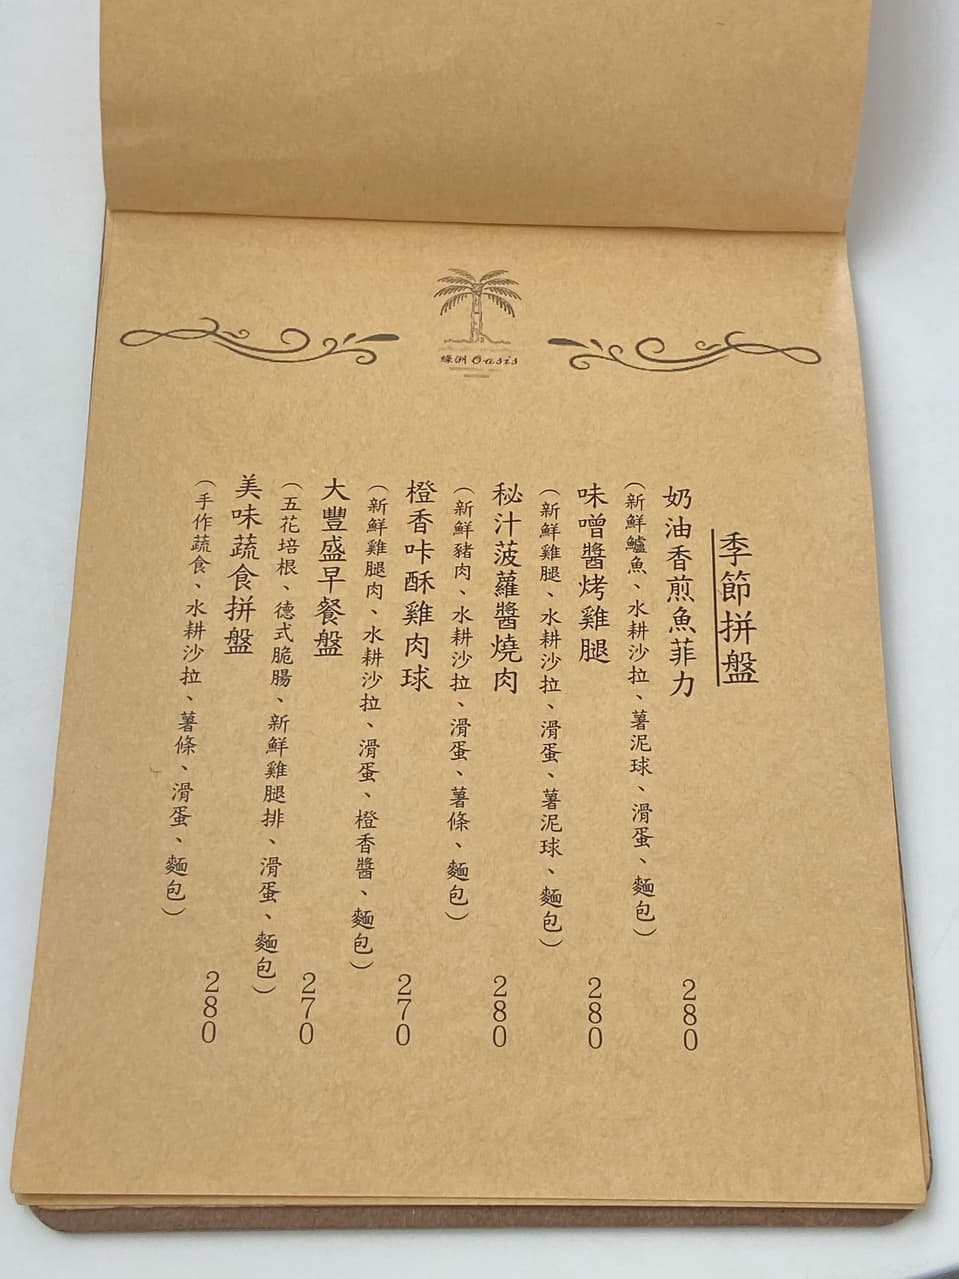 綠洲 Oasis
季節拼盤
奶油香煎魚菲力 280
(新鮮鱸魚、水耕沙拉、薯泥球、滑蛋、麵包)
味噌醬烤雞腿 280
(新鮮雞腿、水耕沙拉、滑蛋、薯泥球、麵包)
秘汁菠蘿醬燒肉 280
(新鮮豬肉、水耕沙拉、滑蛋、薯條、麵包)
橙香咔酥雞肉球 270
(新鮮雞腿肉、水耕沙拉、滑蛋、橙香醬、麵包)
大豐盛早餐盤 270
(五花培根、德式脆腸、新鮮雞腿排、滑蛋、麵包)
美味蔬食拼盤 280
(手作蔬食、水耕沙拉、薯條、滑蛋、麵包)